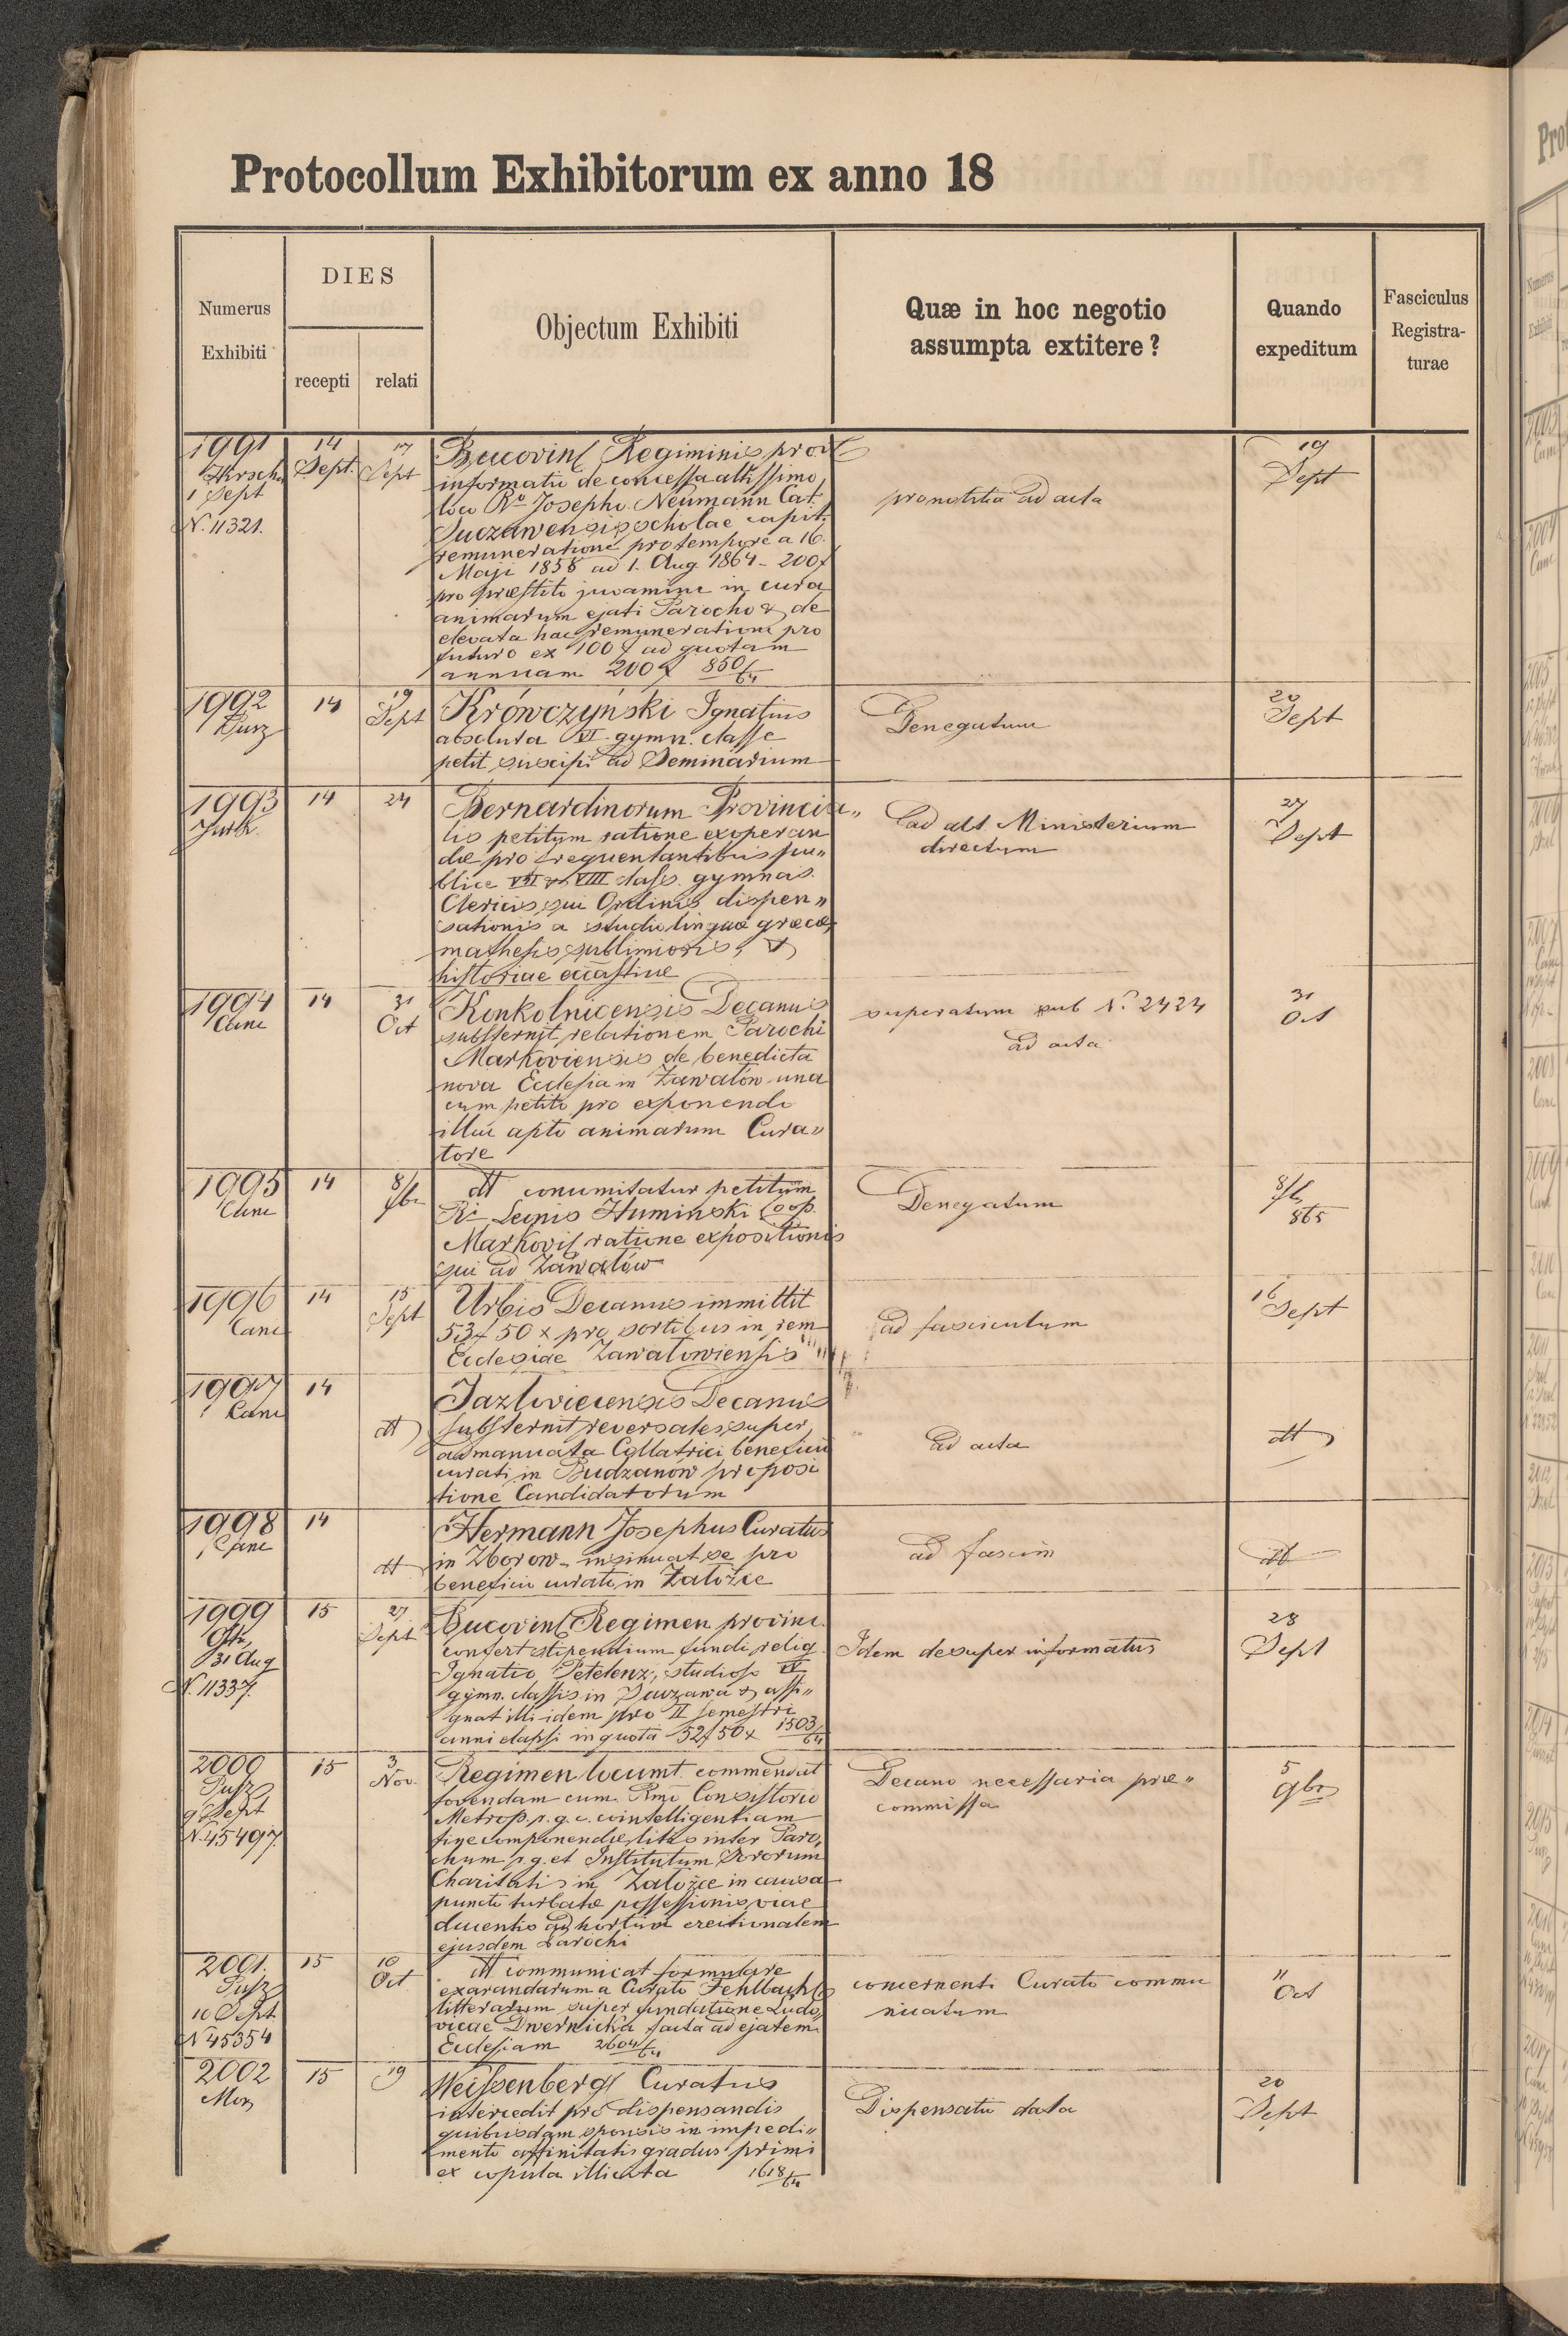 Protocollum Exhibitorum ex anno 18
Numerus
Exhibiti
DIES
recepti
relati
Objectum Exhibiti
Quæ in hoc negotio
assumpta extitere?
Quando
expeditum
Fasciculus
Registra-
turae
1991
1 Sept
N. 11321.
14
Sept.
17
Sept
Bucovin Regiminis prov
informatio de concessa altissimo
loco Rdo Josepho Neumann Cat.
Suczawensis scholae capit.
remuneratione pro tempore a 16.
Maji 1858 ad 1. Aug 1864 - 200f
pro præstito juvamine in cura
animarum ejati Parocho & de
elevata hac remuneratione pro
futuro ex 100 f ad quotam
annuam 200 f 850/64
pro notitia ad acta
19
Sept
1992
14
19
Sept
Krówczyński Ignatius
absoluta VI gymn. classe
petit suscipi ad Seminarium
Denegatum
20
Sept
1993
14
24
Bernardinorum Provincia„
lis petitum ratione exoperan
dæ pro frequentantibus pu„
blice VII & VIII class. gymnas.
Clericis sui Ordinis dispen„
sationis a studio linguæ græcæ,
mathesis sublimioris, &
historiae
ad alt Ministerium
directum
27
Sept
1994
Canc
14
31
Oct
Konkolnicensis Decanus
substernit relationem Parochi
Markoviensis de benedicta
nova Ecclesia in Zawałów una
cum petito pro exponendo
illuc apto animarum Cura„
tore
superatum sub N. 2424
ad acta
31
Oct
1995
Canc
14
8/
dtt comunicatur petitum
Ri Leonis Huminski Coop.
Markovi ratione expositionis
sui ad Zawałów
Denegatum
865
1996
Canc
14
15
Sept
Urbis Decanus immittit
53f 50 x pro sortibus in rem
Ecclesiae Zawałowiensis
ad fasciculum
16
Sept
1997
Canc
14
dtt
Jazlovicensis Decanus
substernit reversales super
admanuata Collatrici beneficii
curati in Budzanów proposi
tione Candidatorum
ad acta
dtt
1998
Canc
14
dtt
Hermann Josephus Curatus
in Zborow insinuat se pro
beneficio curato in Załoźce
ad fascim
dtt
1999
31 Aug
N. 11337.
15
27
Sept
Bucovin Regimen provinc.
confert stipendium fundi relig.
Ignatio Petelenz, studioso IV
gymn. classis in Suczawa & assi„
gnat illi idem pro II semestri
anni elapsi in quota 52f 50x 1503/64
Idem desuper informatus
28
Sept
2000
9 Sept
N. 45497.
15
3
Nov.
Regimen locumt. commendat
fovendam cum Rmo Consistorio
Metrop. r. g. c. cointelligentiam
fine componendæ litis inter Paro„
chum r. g. et Institutum Sororum
Charitatis in Załoźce in causa
puncto turbatæ possessionis viae
ducentis ad hortum
ejusdem Parochi
Decano necessaria præ„
commissa
5
9br
2001.
10 Sept
N 45354
15
10
Oct
dtt communicat formulare
exarandarum a Curato Fehlbach
litterarum super fundatione Ludo„
vicae Dwernicka facta ad ejatem
Ecclesiam 2604/64
concernenti Curato commu
nicatum
11
Oct
2002
15
19
Weissenberg Curatus
intercedit pro dispensandis
quibusdam sponsis in impedi„
mento affinitatis gradus primi
ex copula illicita 1618/64
Dispensatio data
20
Sept